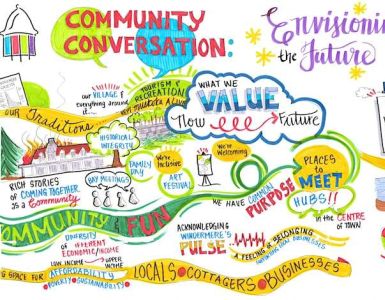 COMMUNITY
CONVERSATION:
Envisioni
the Future
our VILLAGE &
everything around
it....
TOURISM &
RECREATION
muskoka ALIVE
WHAT WE
VALUE
Now
Future
OUR Traditions
HISTORICAL
INTEGRITY
FAMILY
DAY
We're
Inclusive
ART
FESTIVAL
We're
Welcoming
BAY MEETINGS
RICH STORIES
of COMING TOGETHER
as a Community
PLACES
to
MEET
HUBS!!
in the CENTRE
of TOWN
WE HAVE COMMON
PURPOSE
COMMUNITY & FUN
DIVERSITY
of DIFFERENT
ECONOMIC/INCOME
LOW INCOME
UPPER
INCOME
ACKNOWLEDGING
WINDERMERE'S
PULSE
A FEELING of BELONGING
G SPACE FOR AFFORDABILITY
POVERTY SUSTAINABILITY
LOCALS COTTAGERS BUSINESSES